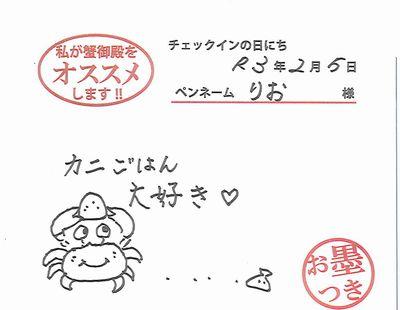 私が蟹御殿を
オススメ
します!!
チェックインの日にち
R3年2月5日
ペンネーム りお 様
カニごはん
大好き♡
お墨
つき